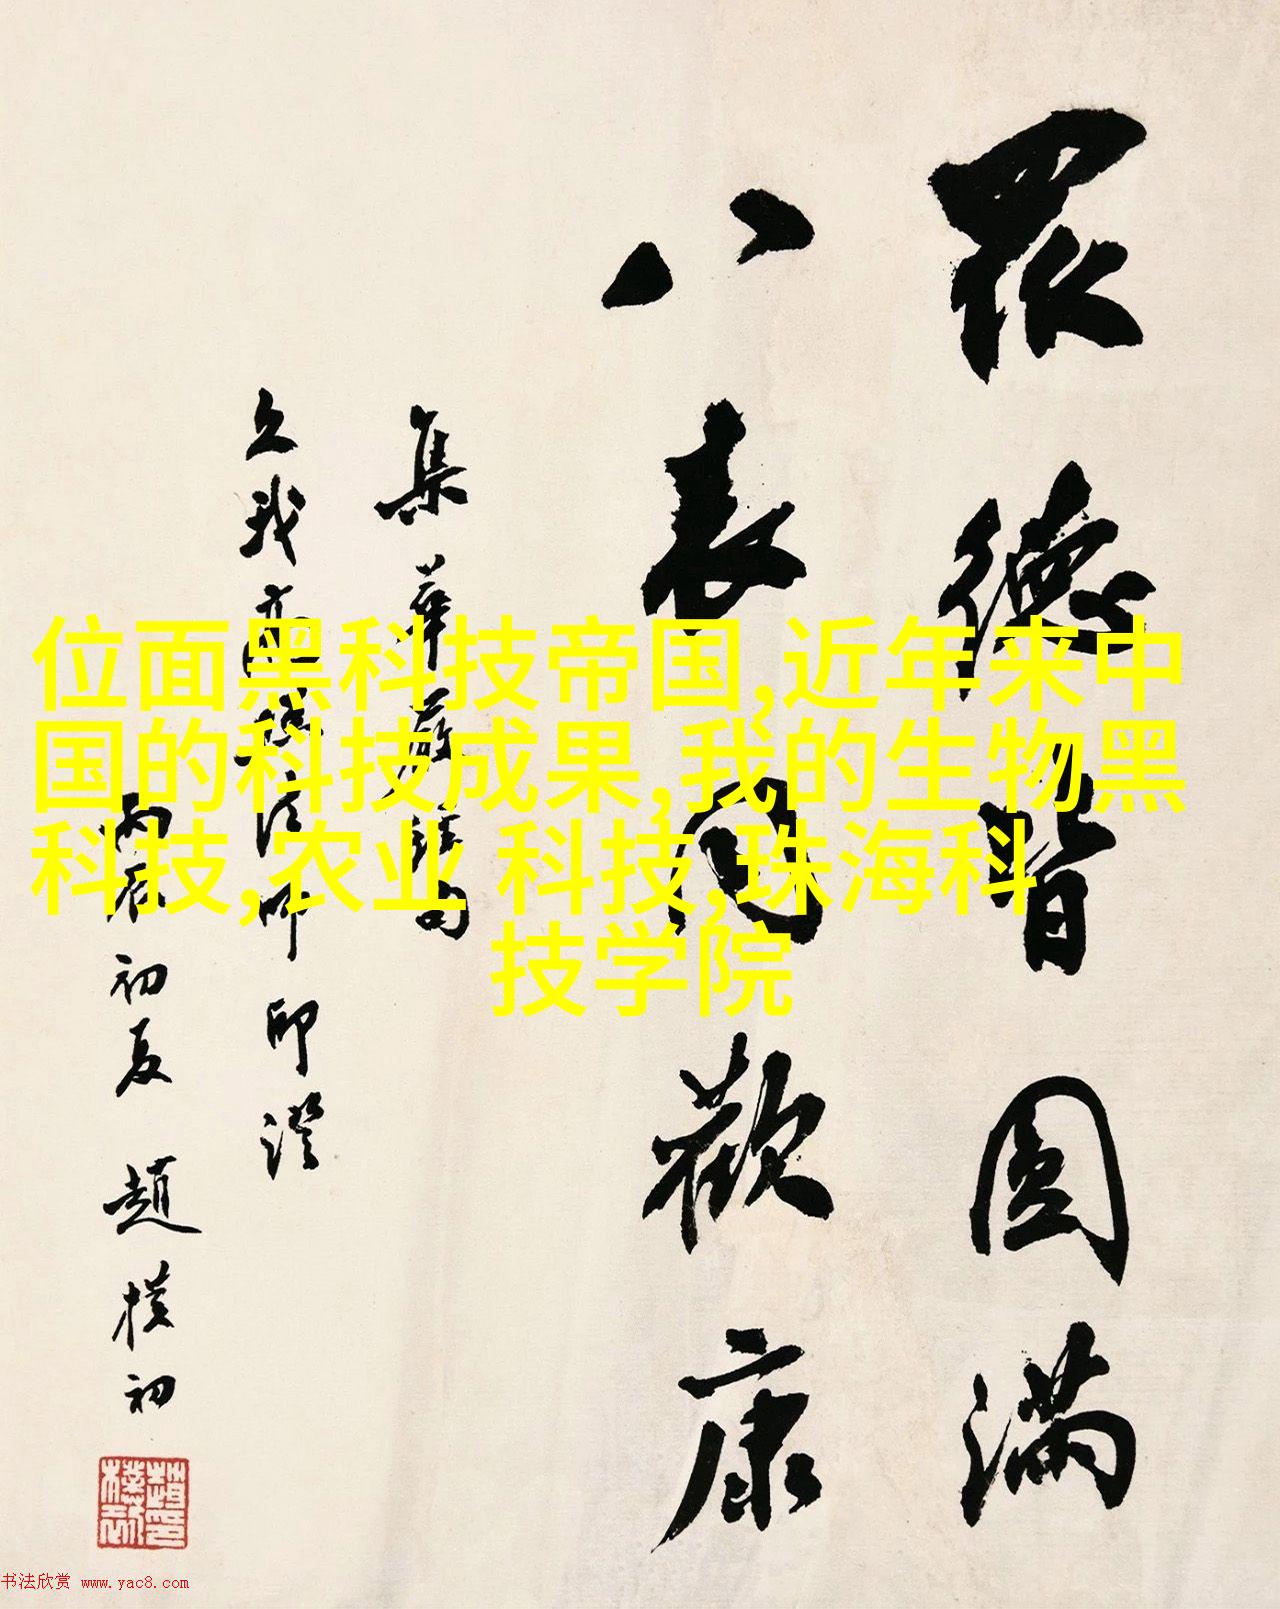 眾德皆圓滿
八表同歡康
集華嚴句
久我高法師印證
丙辰初夏 趙樸初
位面黑科技帝国,近年来中
国的科技成果,我的生物黑
科技,农业 科技,珠海科
技学院
书法欣赏 www.yac8.com